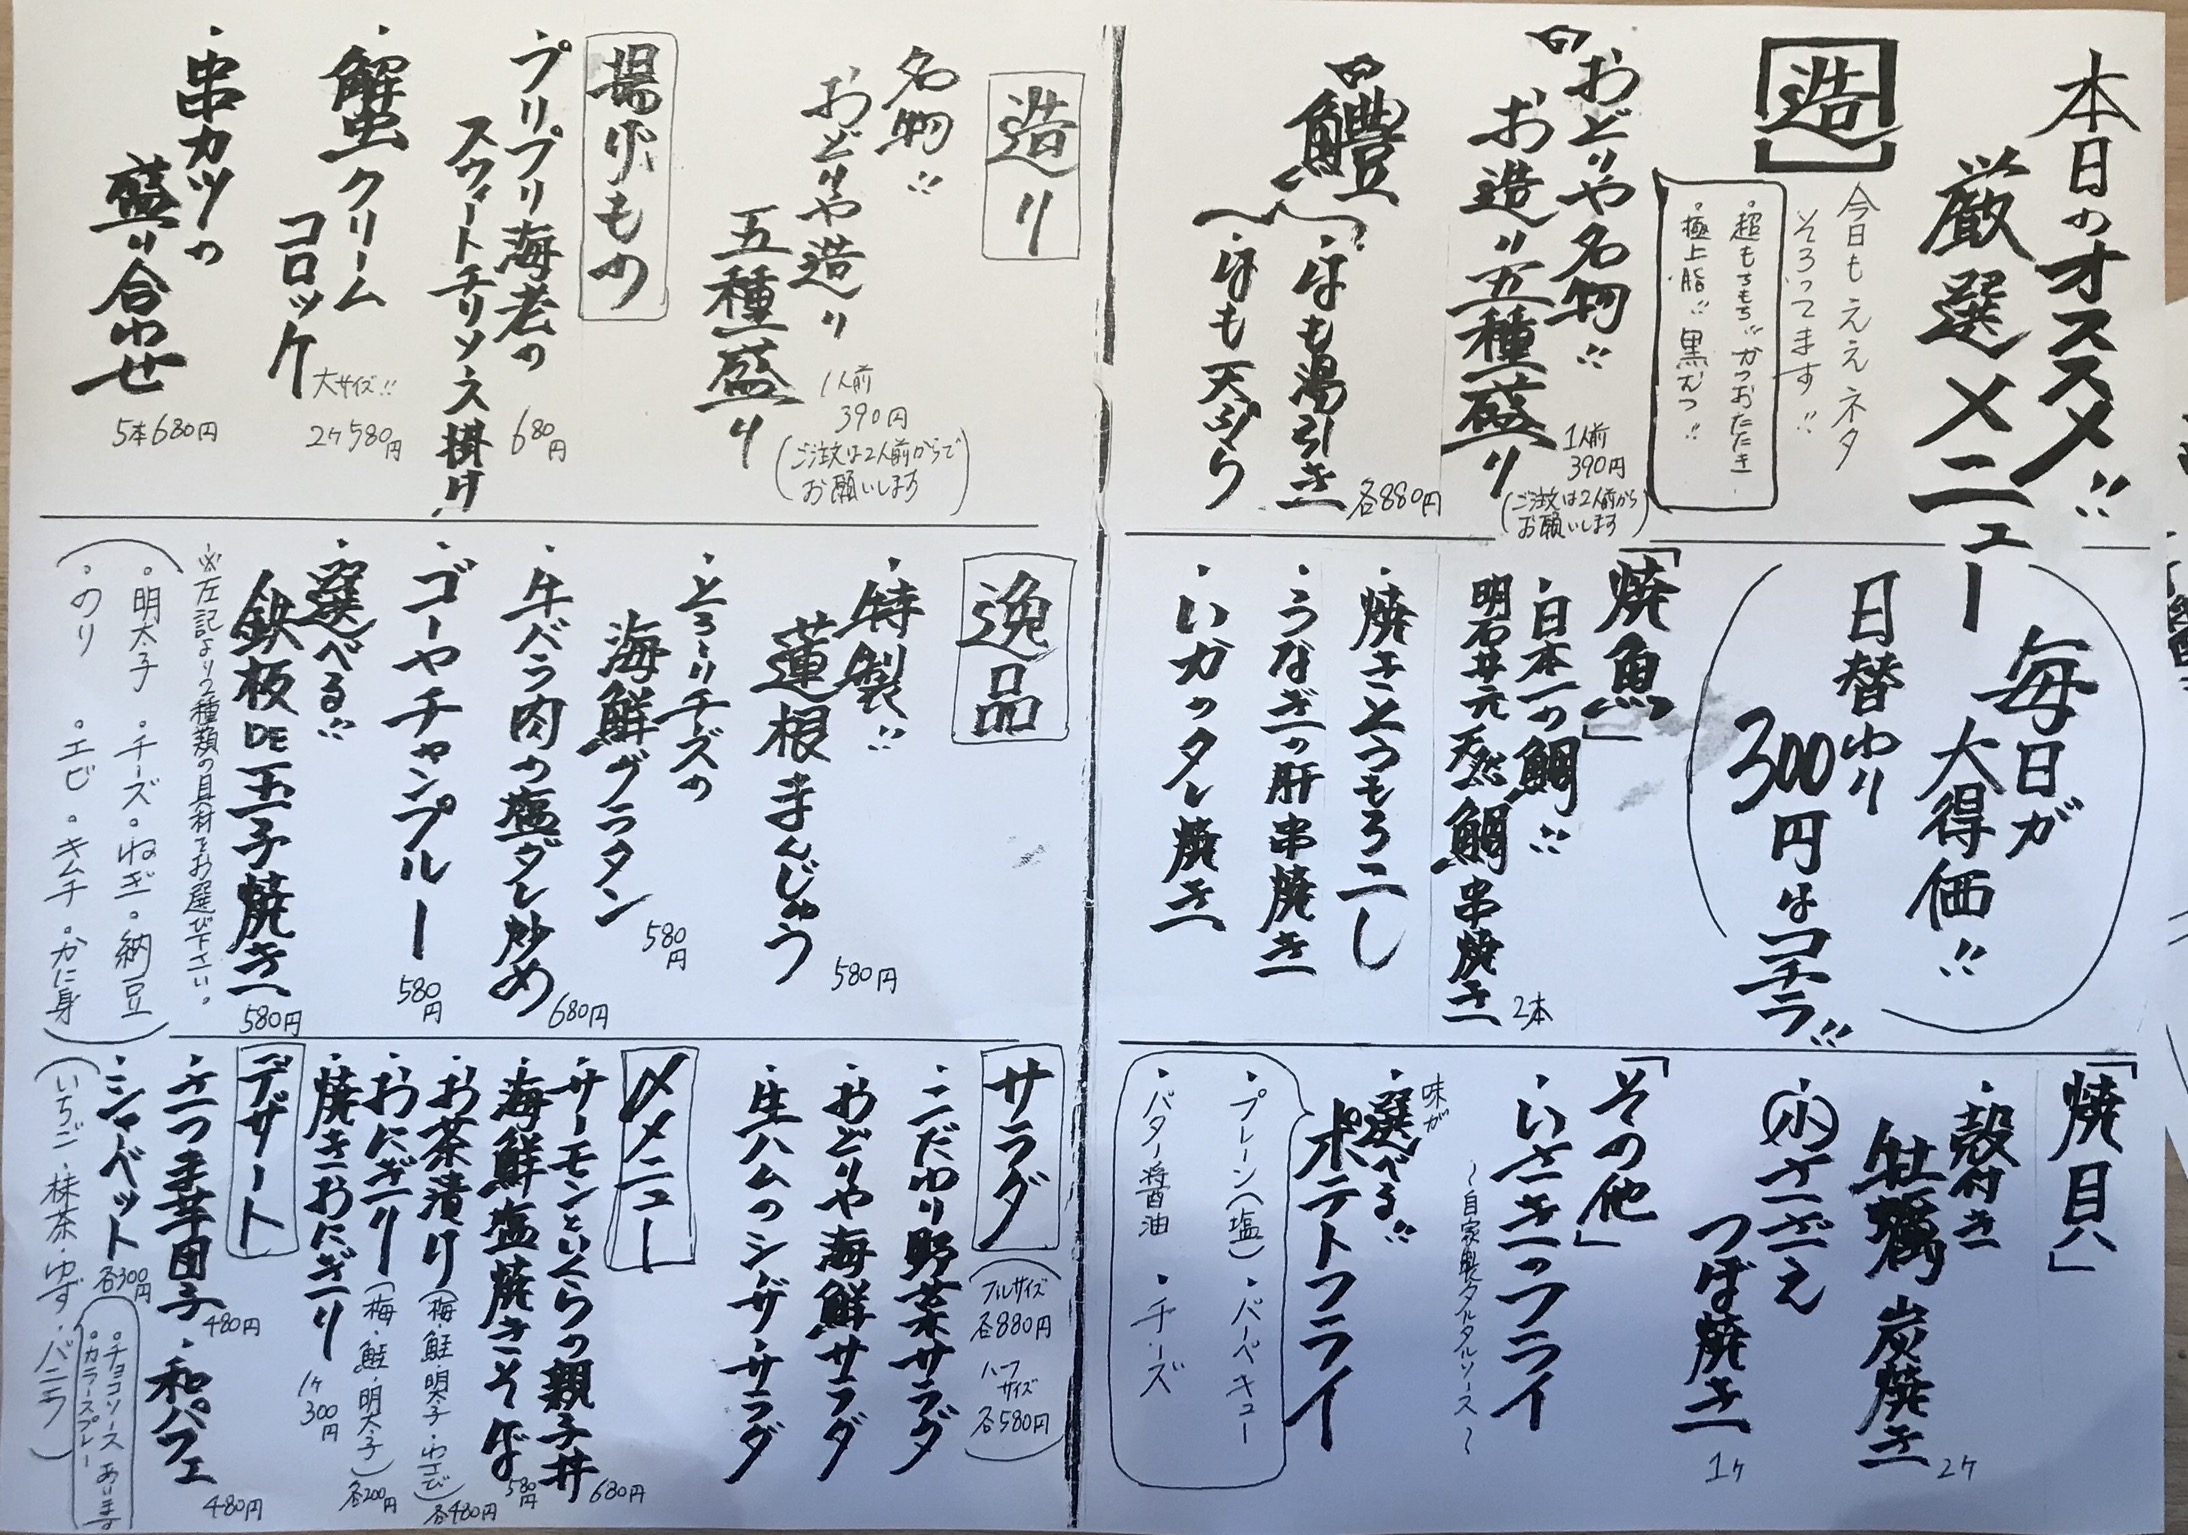 本日のオススメ!!
厳選メニュー
【造】
今日もええネタ
そろってます!!
・超もちもち!!かつおたたき
・極上脂!!黒むつ!!
おどりや名物!!
お造り五種盛り
1人前
390円
(ご注文は2人前から
お願いします)
鱧
・はも湯引き
・はも天ぷら
各880円
毎日が
大得価!!
日替わり
300円はコチラ!!
「焼魚」
・日本一の鯛!!
明石井元天然鯛串焼き
2本
・焼きとうもろこし
・うなぎの肝串焼き
・いかのタレ焼き
「焼貝」
・殻付き
牡蠣炭焼き
2ケ
・小さざえ
つぼ焼き
1ケ
「その他」
・いさきのフライ
〜自家製タルタルソース〜
味が
・選べる!!
ポテトフライ
・プレーン(塩)・バーベキュー
・バター醤油・チーズ
造り
名物!!
おどりや造り
五種盛り
1人前
390円
(ご注文は2人前からで
お願いします)
揚げもの
・プリプリ海老の
スウィートチリソース掛け
680円
・蟹クリーム
コロッケ
大サイズ!!
2ケ580円
・串カツの
盛り合わせ
5本680円
逸品
・特製!!
蓮根まんじゅう
580円
・とろ〜りチーズの
海鮮グラタン
580円
・牛バラ肉の塩ダレ炒め
680円
・ゴーヤチャンプルー
580円
・選べる!!
鉄板DE玉子焼き
580円
※左記より2種類の具材をお選び下さい。
(・明太子・チーズ・ねぎ・納豆
・のり・エビ・キムチ・かに身)
サラダ
(フルサイズ
各880円
ハーフ
サイズ
各580円)
・こだわり野菜サラダ
・おどりや海鮮サラダ
・生ハムのシーザーサラダ
〆メニュー
・サーモンといくらの親子丼
680円
・海鮮塩焼きそば
580円
・お茶漬け(梅・鮭・明太子・わさび)
各480円
・おにぎり(梅・鮭・明太子)
各200円
・焼きおにぎり
1ケ
300円
デザート
・さつま芋団子
480円
・和パフェ
480円
・シャーベット
各300円
(いちご・抹茶・ゆず・バニラ)
・チョコソース
・カラースプレー
あります